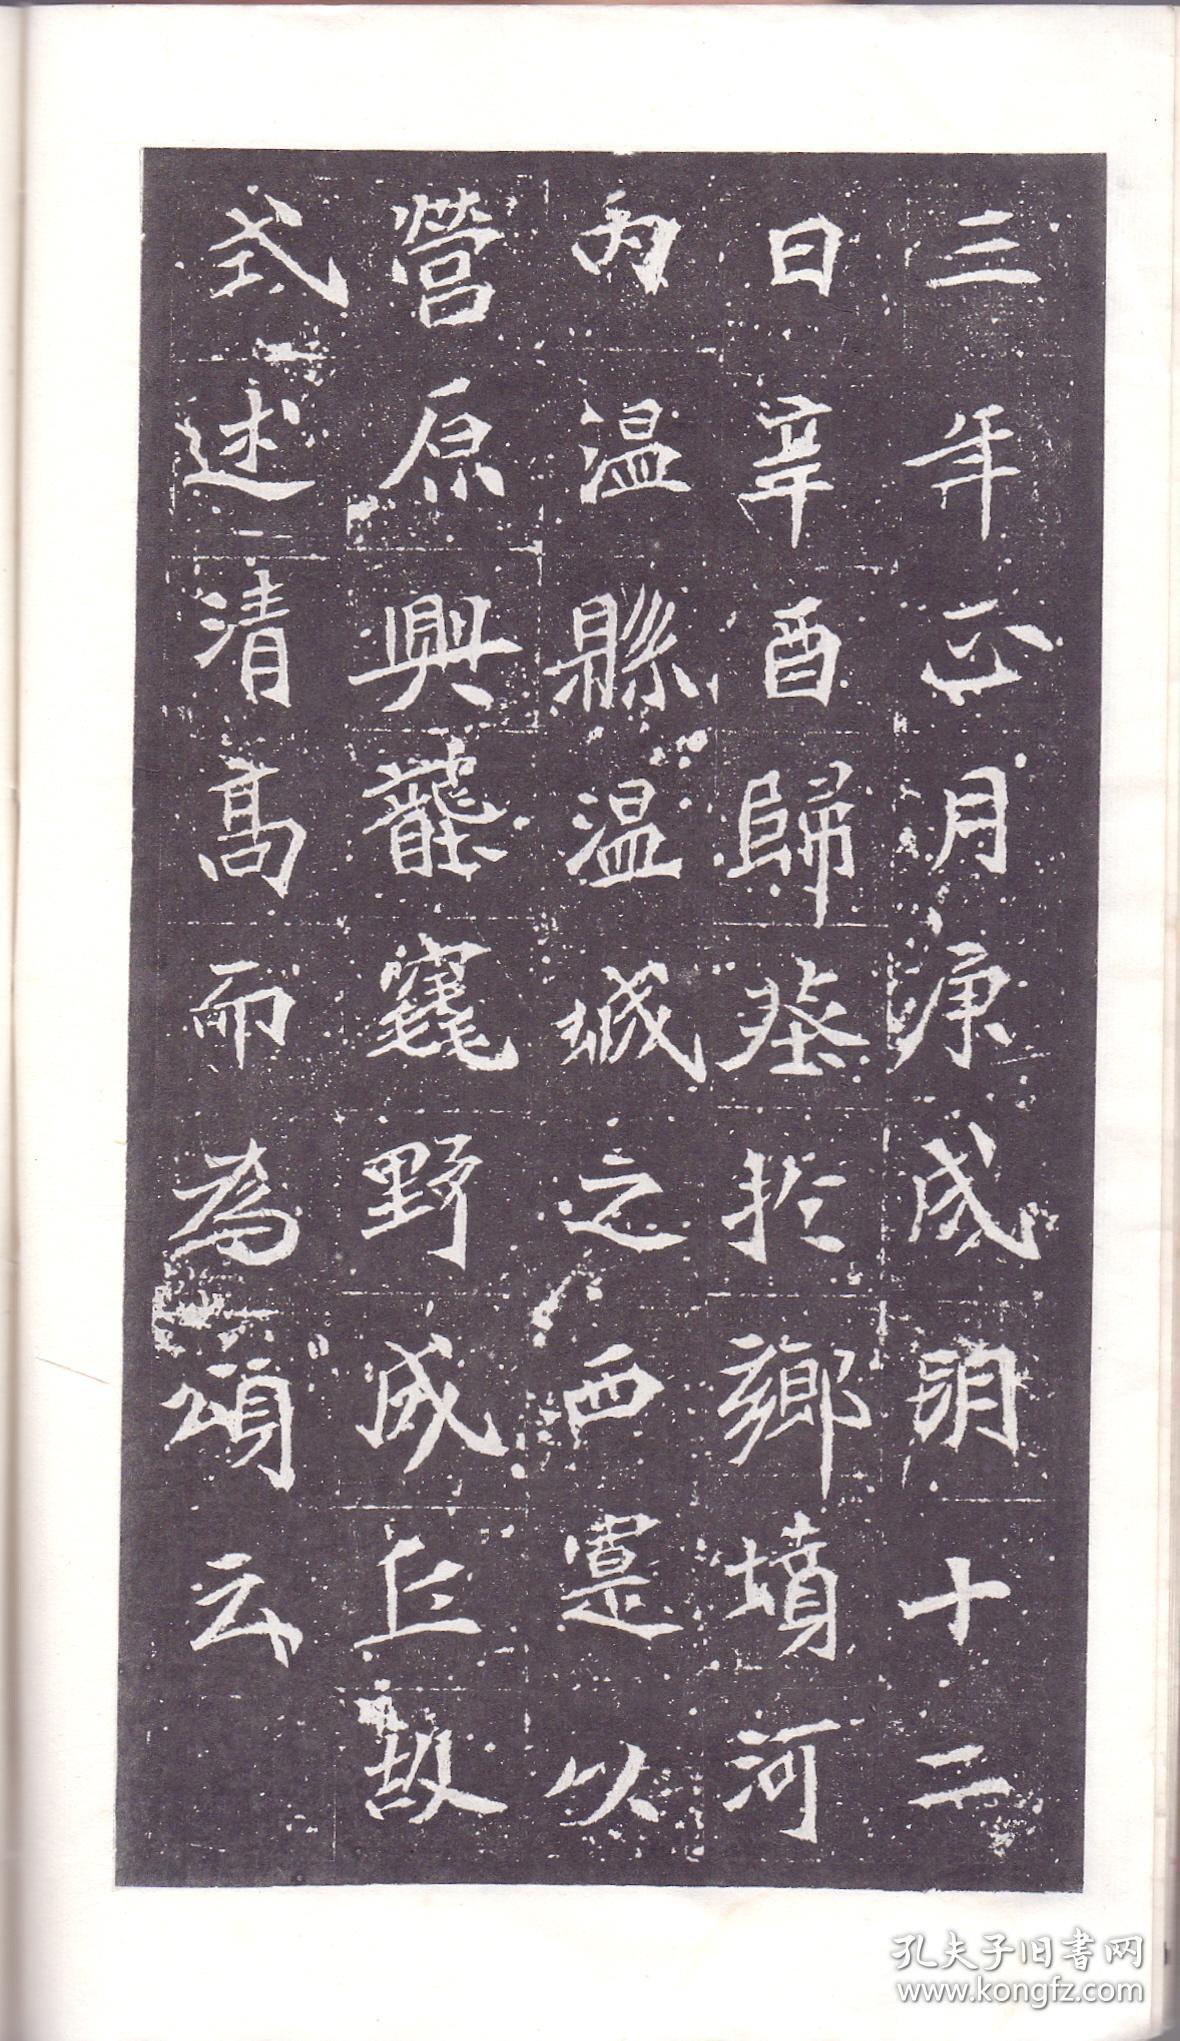 三年正月庚戌朔十二
日辛酉歸葬於鄉墳河
內溫縣溫城之西寔以
營原興壟褰野成丘故
式述清高而為頌云
孔夫子旧書网
www.kongfz.com